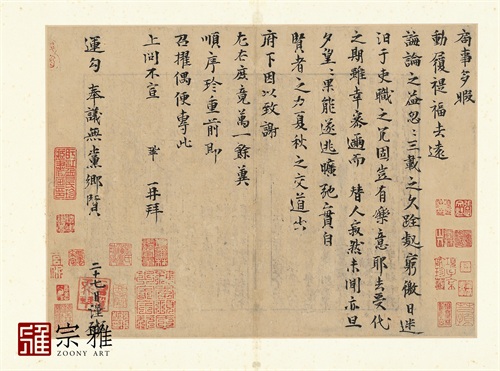 局事多暇
動履禔福去遠
誨論之益忽忽三載之久跧處窮徼日迷
汩于吏職之冗固豈有樂意耶去受代
之期雖幸密邇而替人寂然未聞亦旦
夕望望果能遂逃曠弛之實自
賢者之力夏秋之交道出
府下因以致謝
左右庶竟萬一餘冀
順序珍重前即
召擢偶便專此
上問不宣 鞏 再拜
運勾奉議無黨鄉賢
二十七日謹啟
雅 宗雅
ZOONY ART